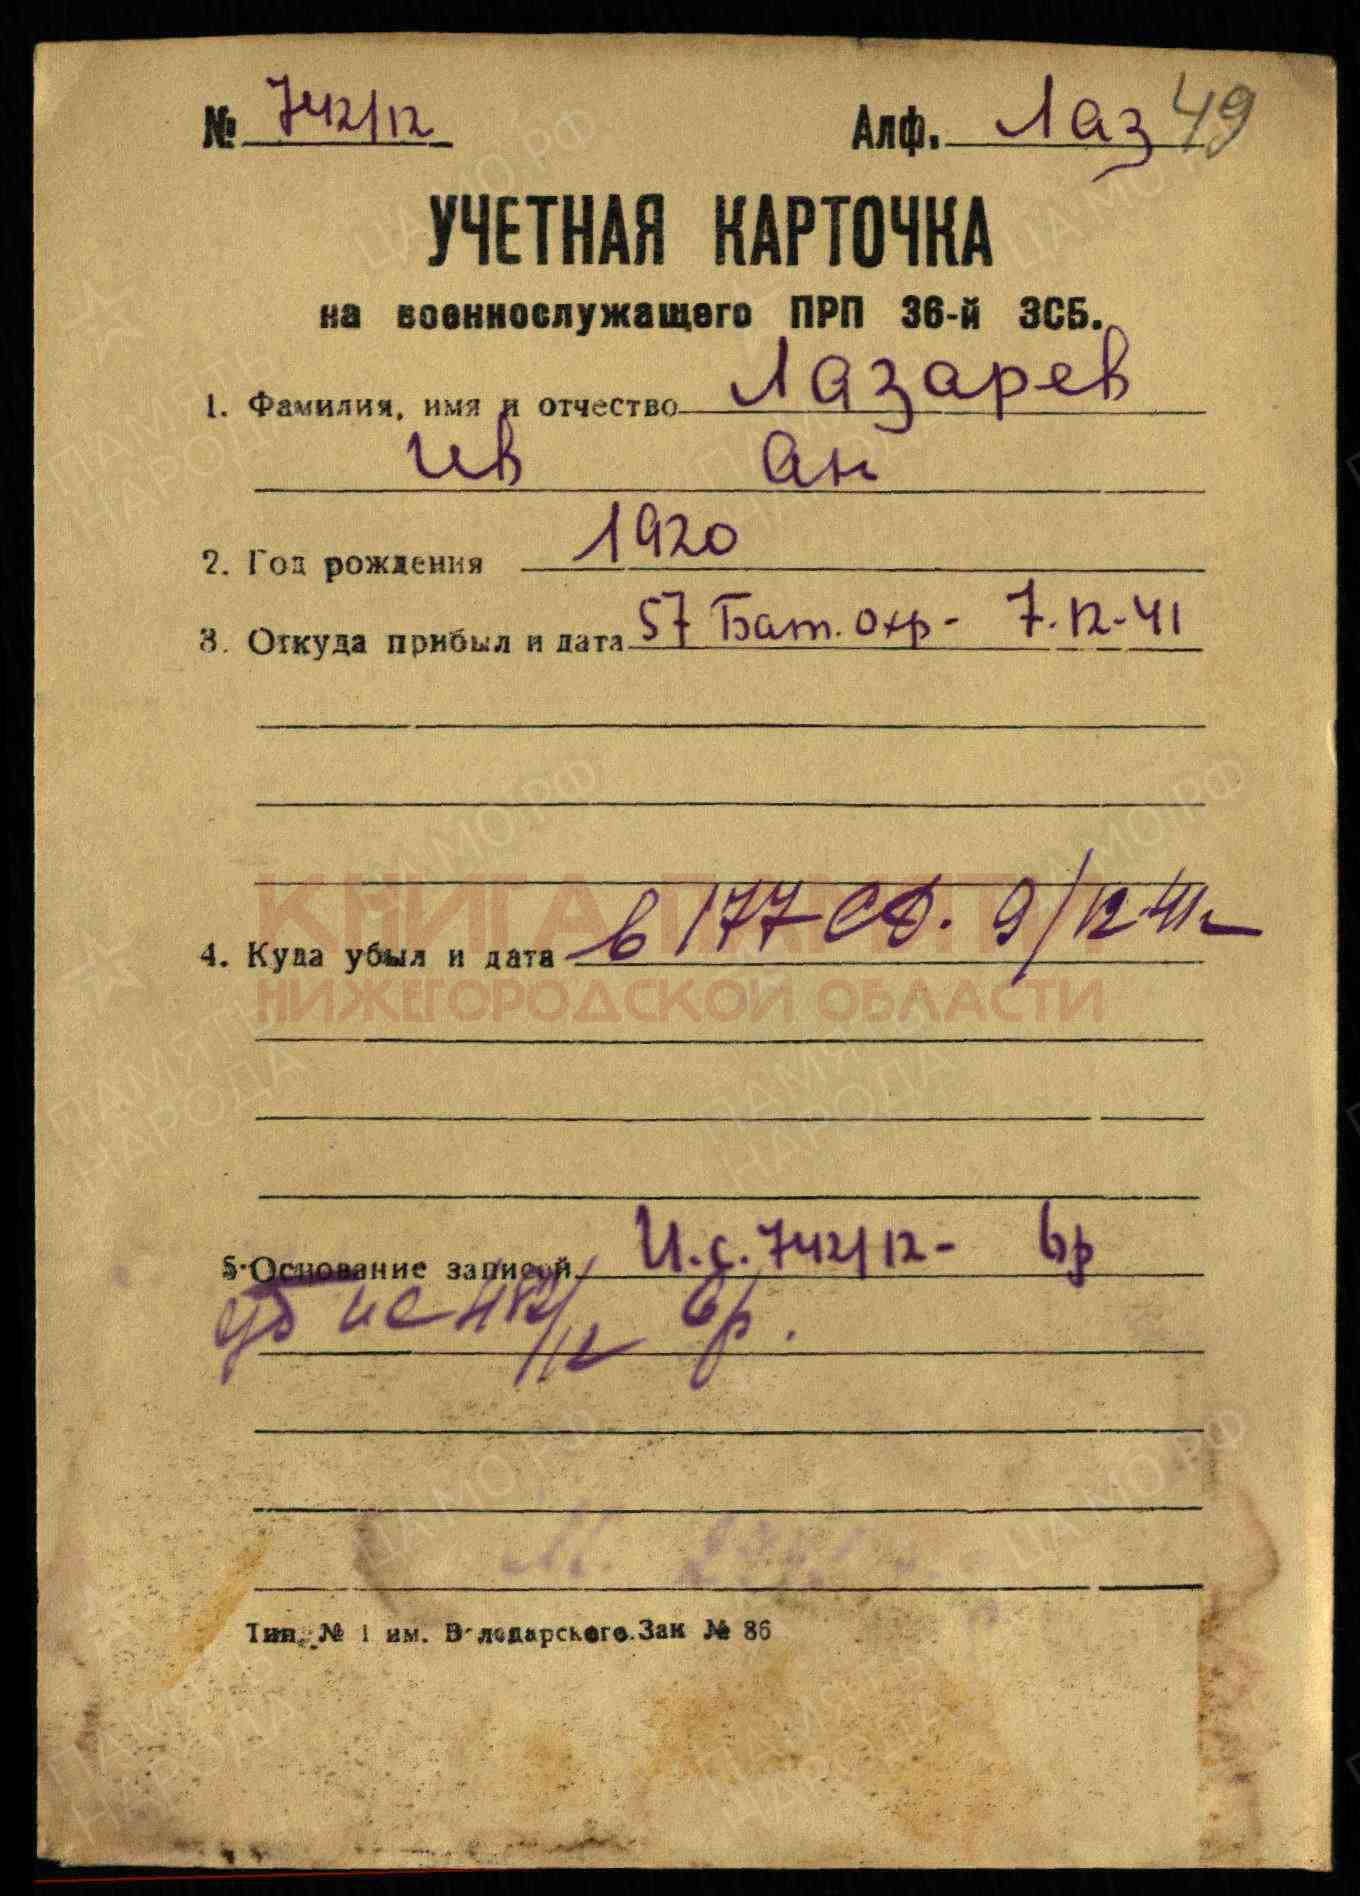 № 742/12 Алф. Лаз 49
УЧЕТНАЯ КАРТОЧКА
на военнослужащего ПРП 36-й ЗСБ.
1. Фамилия, имя и отчество Лазарев
Ив Ан
2. Год рождения 1920
3. Откуда прибыл и дата 57 Бат. охр- 7.12-41
КНИГА ПАМЯТИ
4. Куда убыл и дата в 177 СД. 9/12 41г
НИЖЕГОРОДСКОЙ ОБЛАСТИ
5. Основание записей И.с. 742/12- вр
уб ис 482/12 вр.
Тип. № 1 им. Володарского. Зак № 86